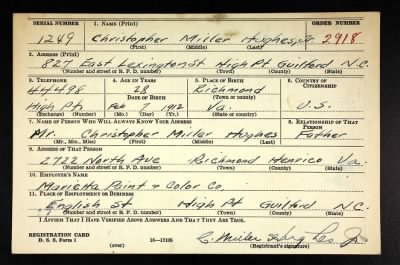 SERIAL NUMBER 1. NAME (Print) ORDER NUMBER
1249 Christopher Miller Hughes, Jr 2918
(First) (Middle) (Last)
2. ADDRESS (Print)
827 East Lexington St High Pt Guilford N.C.
(Number and street or R. F. D. number) (Town) (County) (State)
3. TELEPHONE 4. AGE IN YEARS 5. PLACE OF BIRTH 6. COUNTRY OF CITIZENSHIP
44498 28 Richmond
DATE OF BIRTH (Town or county)
High Pt. Feb 7 1912 Va. U.S.
(Exchange) (Number) (Mo.) (Day) (Yr.) (State or country)
7. NAME OF PERSON WHO WILL ALWAYS KNOW YOUR ADDRESS 8. RELATIONSHIP OF THAT PERSON
Mr. Christopher Miller Hughes Father
(Mr., Mrs., Miss) (First) (Middle) (Last)
9. ADDRESS OF THAT PERSON
2722 North Ave Richmond Henrico Va.
(Number and street or R. F. D. number) (Town) (County) (State)
10. EMPLOYER'S NAME
Marietta Paint & Color Co.
11. PLACE OF EMPLOYMENT OR BUSINESS
English St High Pt Guilford N.C.
(Number and street or R. F. D. number) (Town) (County) (State)
I AFFIRM THAT I HAVE VERIFIED ABOVE ANSWERS AND THAT THEY ARE TRUE.
REGISTRATION CARD
D. S. S. Form 1 (over) 16—17105 (Registrant's signature)